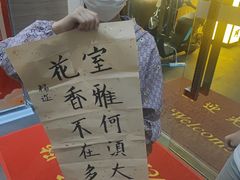 室雅何須大
花香不在多
Welcome